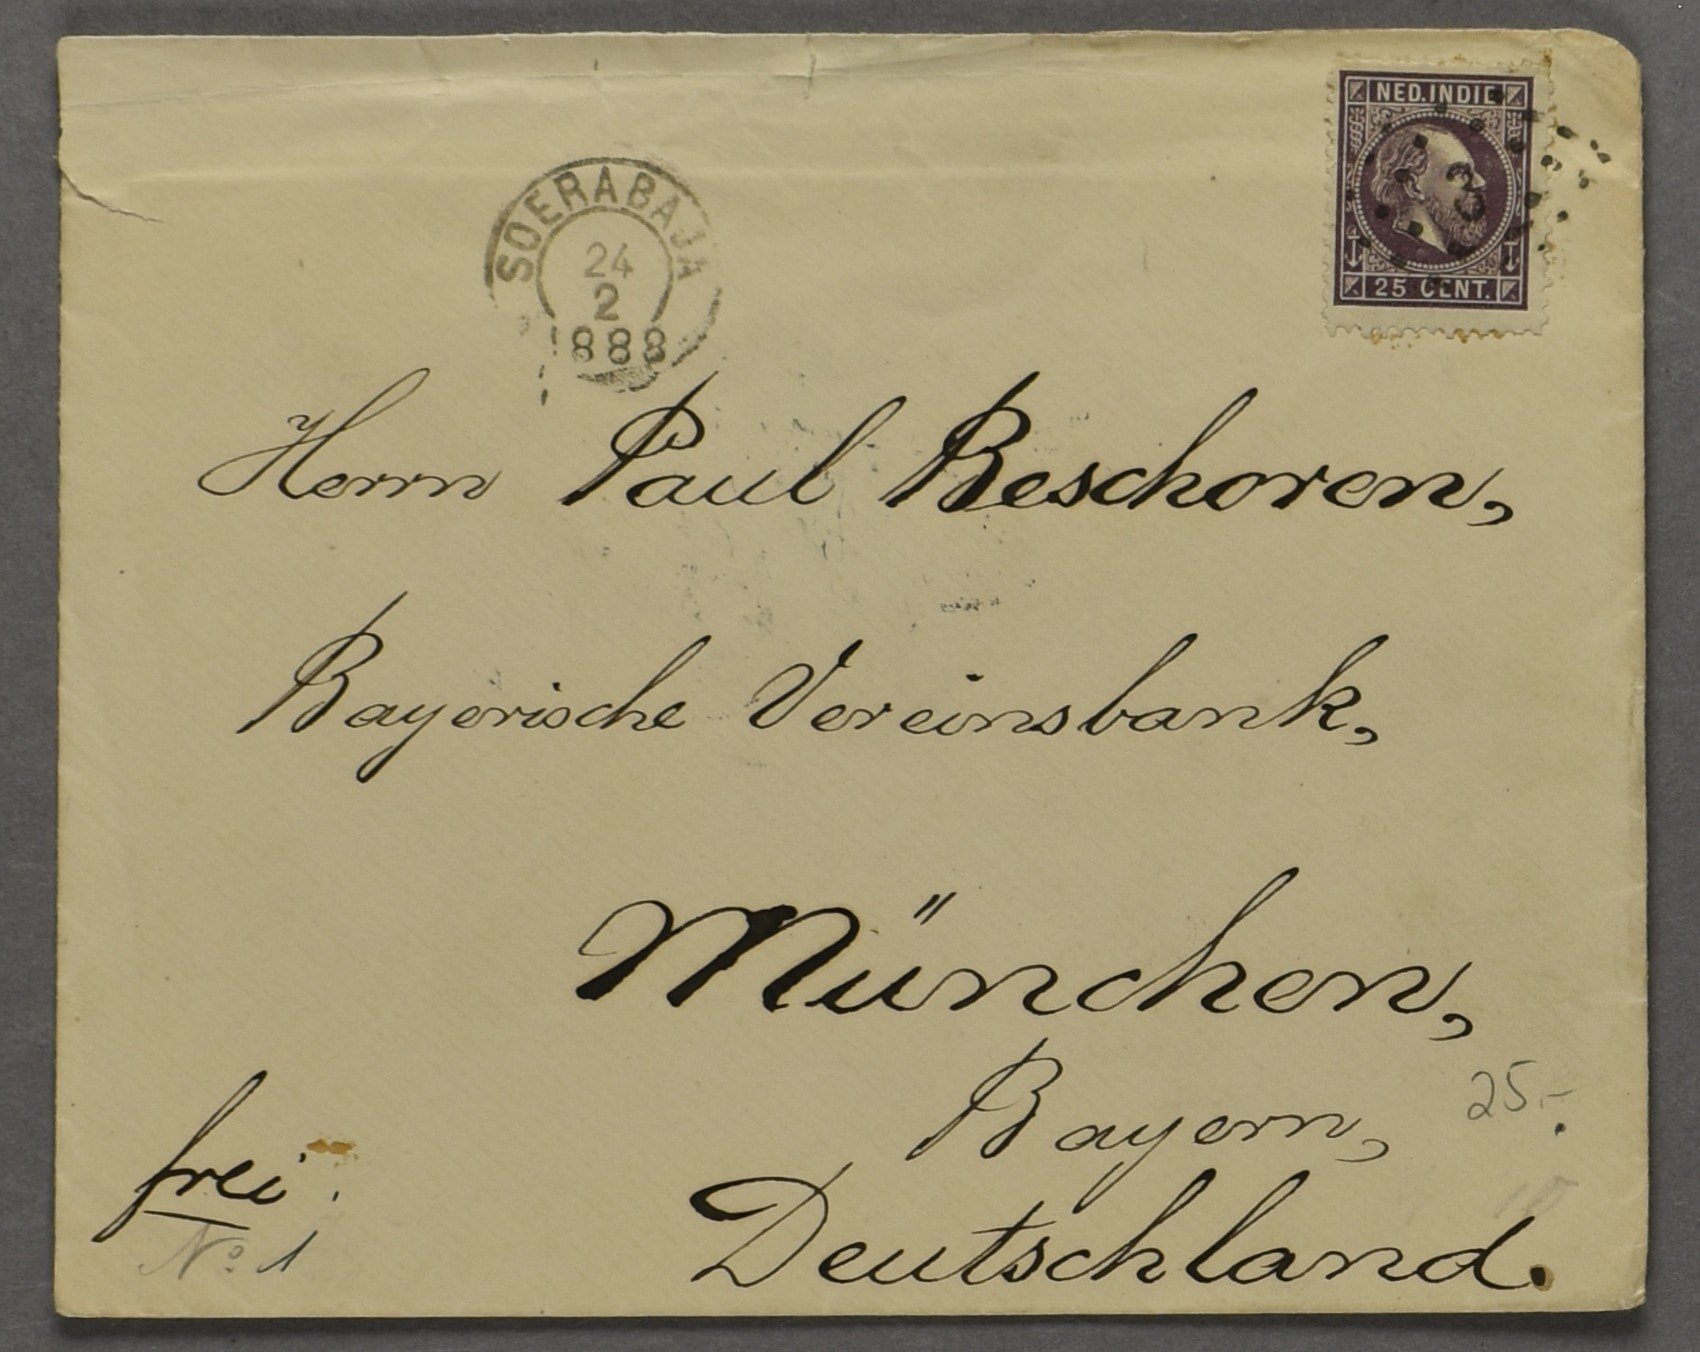 NED. INDIE
3
25 CENT.
SOERABAJA
24
2
1888
Herrn Paul Beschoren,
Bayerische Vereinsbank,
München,
Bayern,
25.-
frei.
Deutschland.
No 1